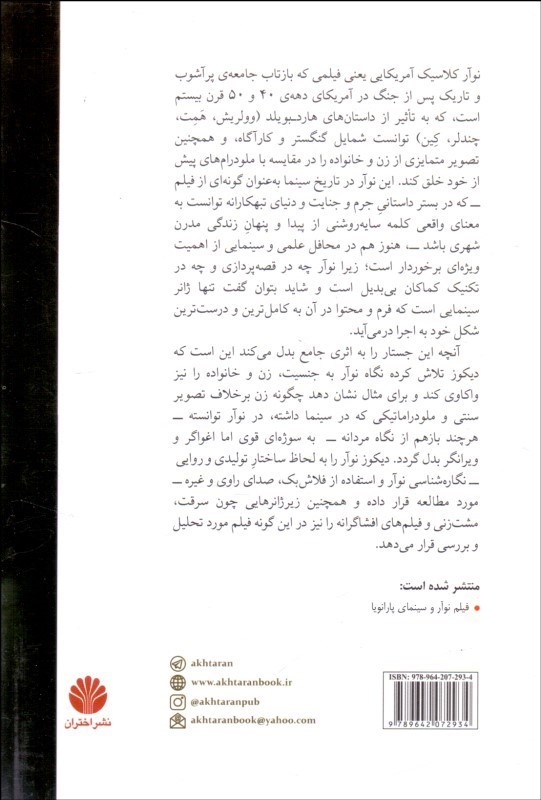 نوآر کلاسیک آمریکایی یعنی فیلمی که بازتاب جامعه‌ی پرآشوب
و تاریک پس از جنگ در آمریکای دهه‌ی ۴۰ و ۵۰ قرن بیستم
است، که به تأثیر از داستان‌های هاردبویلد (وولریش، هَمِت،
چندلر، کِین) توانست شمایل گنگستر و کارآگاه، و همچنین
تصویر متمایزی از زن و خانواده را در مقایسه با ملودرام‌های پیش
از خود خلق کند. این نوآر در تاریخ سینما به‌عنوان گونه‌ای از فیلم
ــ که در بستر داستانیِ جرم و جنایت و دنیای تبهکارانه توانست به
معنای واقعی کلمه سایه‌روشنی از پیدا و پنهانِ زندگی مدرن
شهری باشد ــ، هنوز هم در محافل علمی و سینمایی از اهمیت
ویژه‌ای برخوردار است؛ زیرا نوآر چه در قصه‌پردازی و چه در
تکنیک کماکان بی‌بدیل است و شاید بتوان گفت تنها ژانر
سینمایی است که فرم و محتوا در آن به کامل‌ترین و درست‌ترین
شکل خود به اجرا درمی‌آید.
آنچه این جستار را به اثری جامع بدل می‌کند این است که
دیکوز تلاش کرده نگاه نوآر به جنسیت، زن و خانواده را نیز
واکاوی کند و برای مثال نشان دهد چگونه زن برخلاف تصویر
سنتی و ملودراماتیکی که در سینما داشته، در نوآر توانسته ــ
هرچند بازهم از نگاه مردانه ــ به سوژه‌ای قوی اما اغواگر و
ویرانگر بدل گردد. دیکوز نوآر را به لحاظ ساختارِ تولیدی و روایی
ــ نگاره‌شناسی نوآر و استفاده از فلاش‌بک، صدای راوی و غیره ــ
مورد مطالعه قرار داده و همچنین زیرژانرهایی چون سرقت،
مشت‌زنی و فیلم‌های افشاگرانه را نیز در این گونه فیلم مورد تحلیل
و بررسی قرار می‌دهد.
منتشر شده است:
• فیلم نوآر و سینمای پارانویا
akhtaran
www.akhtaranbook.ir
@akhtaranpub
akhtaranbook@yahoo.com
نشر اختران
ISBN: 978-964-207-293-4
9 789642 072934